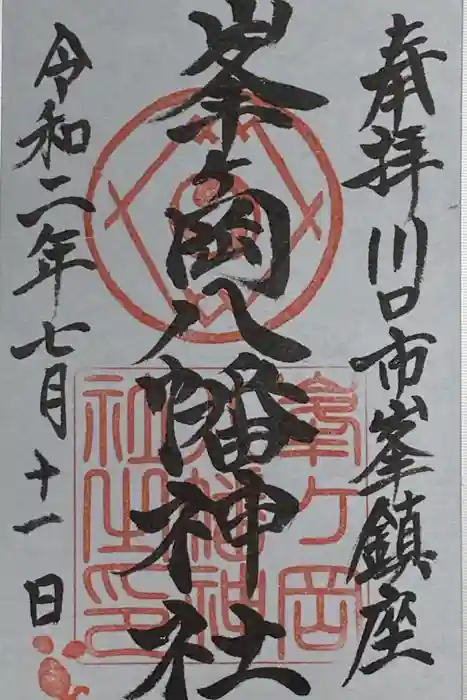 奉拝川口市峯鎮座
峯ヶ岡八幡神社
令和二年七月十一日
峯ヶ岡
八幡神
社之印